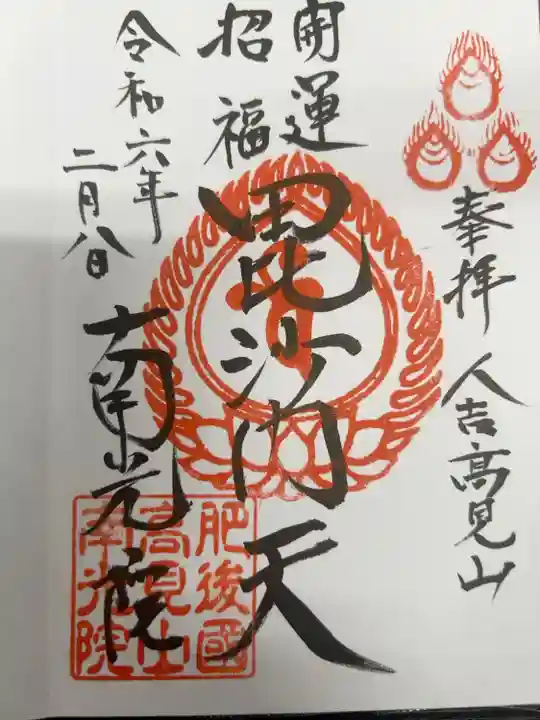 奉拝 人吉高見山
開運
招福
毘沙門天
南光院
令和六年
二月八日
肥後國
高見山
南光院